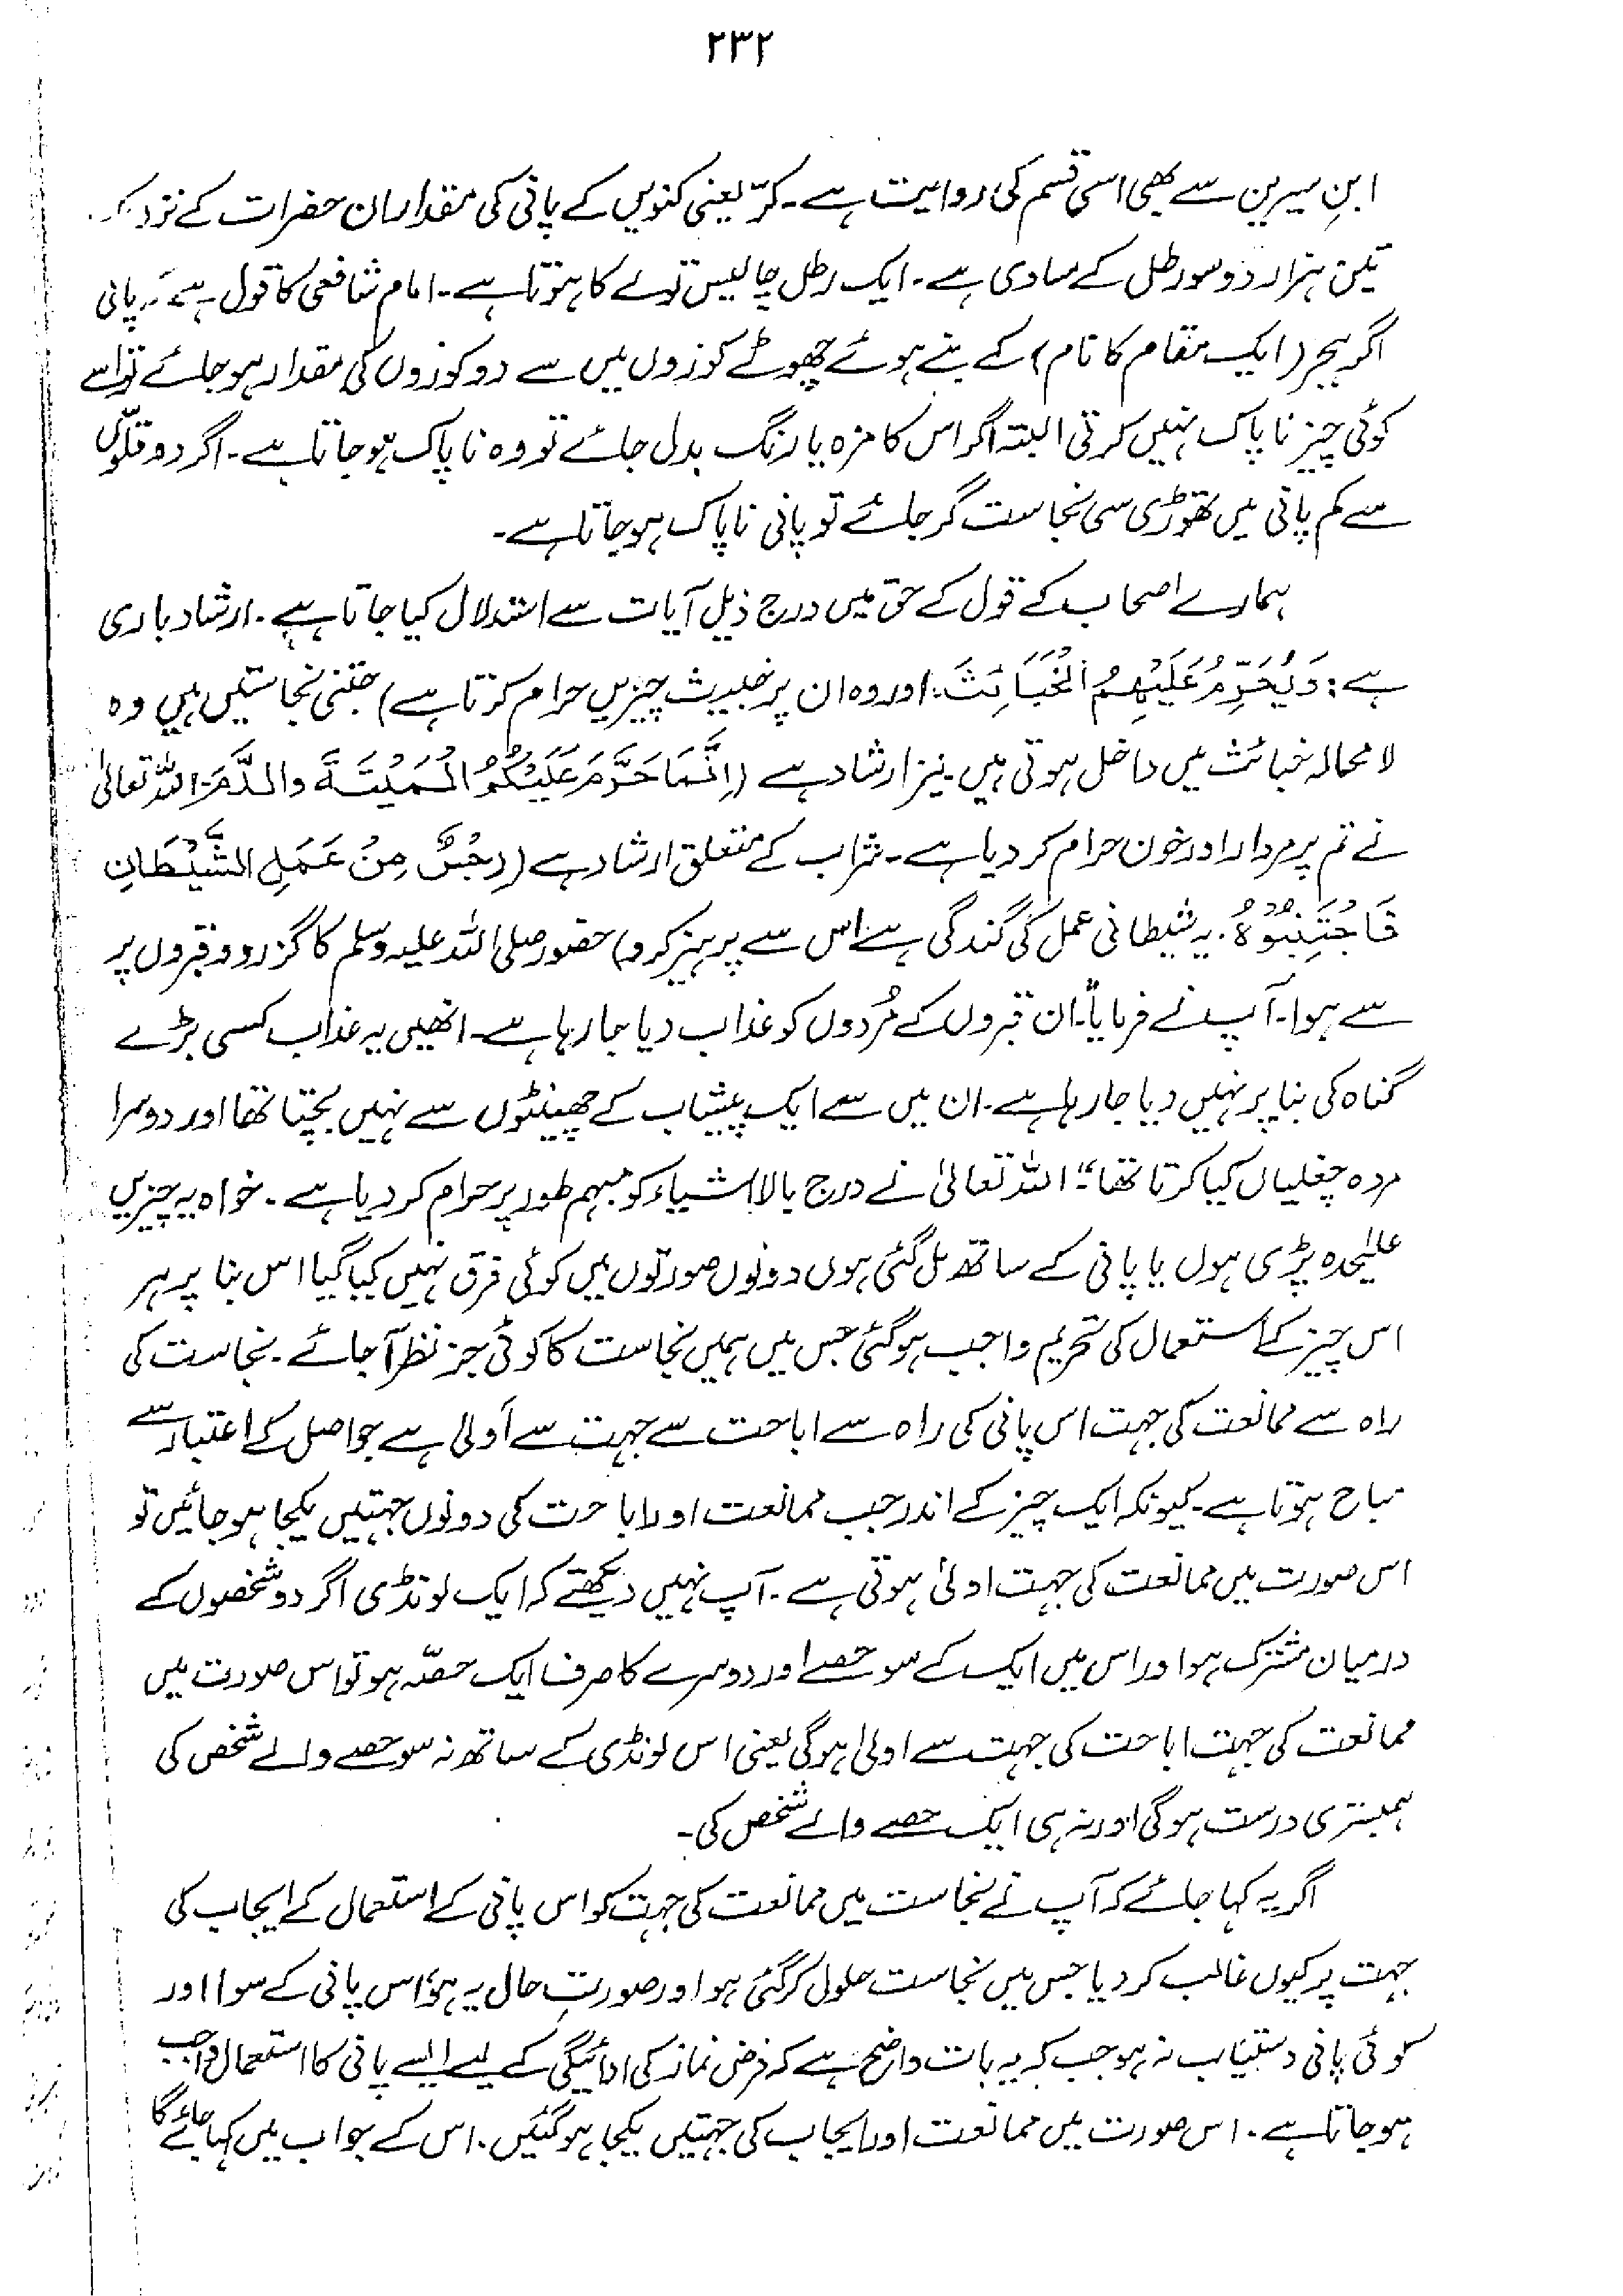 ۲۳۲
ابنِ سیرین سے بھی اسی قسم کی روایت ہے۔ کرّ یعنی کنویں کے پانی کی مقدار ان حضرات کے نزدیک
تین ہزار دو سو رطل کے مساوی ہے۔ ایک رطل چالیس تولے کا ہوتا ہے۔ امام شافعی کا قول ہے کہ پانی
اگر ہجر (ایک مقام کا نام) کے بنے ہوئے چھوٹے کوزوں میں سے دو کوزوں کی مقدار ہو جائے تو اسے
کوئی چیز ناپاک نہیں کرتی البتہ اگر اس کا مزہ یا رنگ بدل جائے تو وہ ناپاک ہو جاتا ہے۔ اگر دو قلّوں
سے کم پانی میں تھوڑی سی نجاست گر جائے تو پانی ناپاک ہو جاتا ہے۔
ہمارے اصحاب کے قول کے حق میں درج ذیل آیات سے استدلال کیا جاتا ہے۔ ارشاد باری
ہے: وَیُحَرِّمُ عَلَیْھِمُ الْخَبَائِثَ: اور وہ ان پر خبیث چیزیں حرام کرتا ہے) جتنی نجاستیں ہیں وہ
لا محالہ خبائث میں داخل ہوتی ہیں۔ نیز ارشاد ہے (اِنَّمَا حَرَّمَ عَلَیْکُمُ الْمَیْتَةَ والدَّمَ: اللہ تعالیٰ
نے تم پر مردار اور خون حرام کر دیا ہے۔ شراب کے متعلق ارشاد ہے (رِجْسٌ مِنْ عَمَلِ الشَّیْطَانِ
فَاجْتَنِبُوْہُ۔ یہ شیطانی عمل کی گندگی ہے اس سے پرہیز کرو) حضور صلی اللہ علیہ وسلم کا گزر دو قبروں پر
سے ہوا۔ آپ نے فرمایا "ان قبروں کے مُردوں کو عذاب دیا جا رہا ہے۔ انھیں یہ عذاب کسی بڑے
گناہ کی بنا پر نہیں دیا جا رہا ہے۔ ان میں سے ایک پیشاب کے چھینٹوں سے نہیں بچتا تھا اور دوسرا
مردہ چغلیاں کیا کرتا تھا" اللہ تعالیٰ نے درج بالا اشیاء کو مبہم طور پر حرام کر دیا ہے۔ خواہ یہ چیزیں
علیٰحدہ پڑی ہوں یا پانی کے ساتھ مل گئی ہوں دونوں صورتوں میں کوئی فرق نہیں کیا گیا اس بنا پر ہر
اس چیز کے استعمال کی تحریم واجب ہو گئی جس میں ہمیں نجاست کا کوئی جز نظر آ جائے۔ نجاست کی
راہ سے ممانعت کی جہت اس پانی کی راہ سے اباحت سے جہت سے اَولیٰ ہے جو اصل کے اعتبار سے
مباح ہوتا ہے۔ کیونکہ ایک چیز کے اندر جب ممانعت اور اباحت کی دونوں جہتیں یکجا ہو جائیں تو
اس صورت میں ممانعت کی جہت اولیٰ ہوتی ہے۔ آپ نہیں دیکھتے کہ ایک لونڈی اگر دو شخصوں کے
درمیان مشترک ہو اور اس میں ایک کے سو حصے اور دوسرے کا صرف ایک حصّہ ہو تو اس صورت میں
ممانعت کی جہت اباحت کی جہت سے اولیٰ ہو گی یعنی اس لونڈی کے ساتھ نہ سو حصے والے شخص کی
ہمبستری درست ہو گی اور نہ ہی ایک حصے والے شخص کی۔
اگر یہ کہا جائے کہ آپ نے نجاست میں ممانعت کی جہت کو اس پانی کے استعمال کے ایجاب کی
جہت پر کیوں غالب کر دیا جس میں نجاست حلول کر گئی ہو اور صورتِ حال یہ ہو اس پانی کے سوا اور
کوئی پانی دستیاب نہ ہو جب کہ یہ بات واضح ہے کہ فرض نماز کی ادائیگی کے لیے ایسے پانی کا استعمال واجب
ہو جاتا ہے۔ اس صورت میں ممانعت اور ایجاب کی جہتیں یکجا ہو گئیں۔ اس کے جواب میں کہا جائے گا